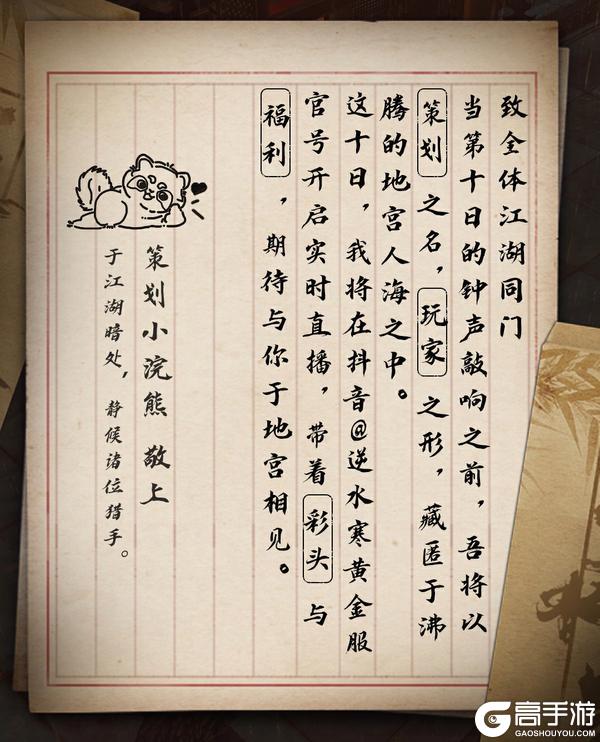 致全体江湖同门
当第十日的钟声敲响之前，吾将以
策划之名，玩家之形，藏匿于沸
腾的地宫人海之中。
这十日，我将在抖音@逆水寒黄金服
官号开启实时直播，带着彩头与
福利，期待与你于地宫相见。
策划小浣熊 敬上
于江湖暗处，静候诸位猎手。
高手游
GAOSHOUYOU.COM